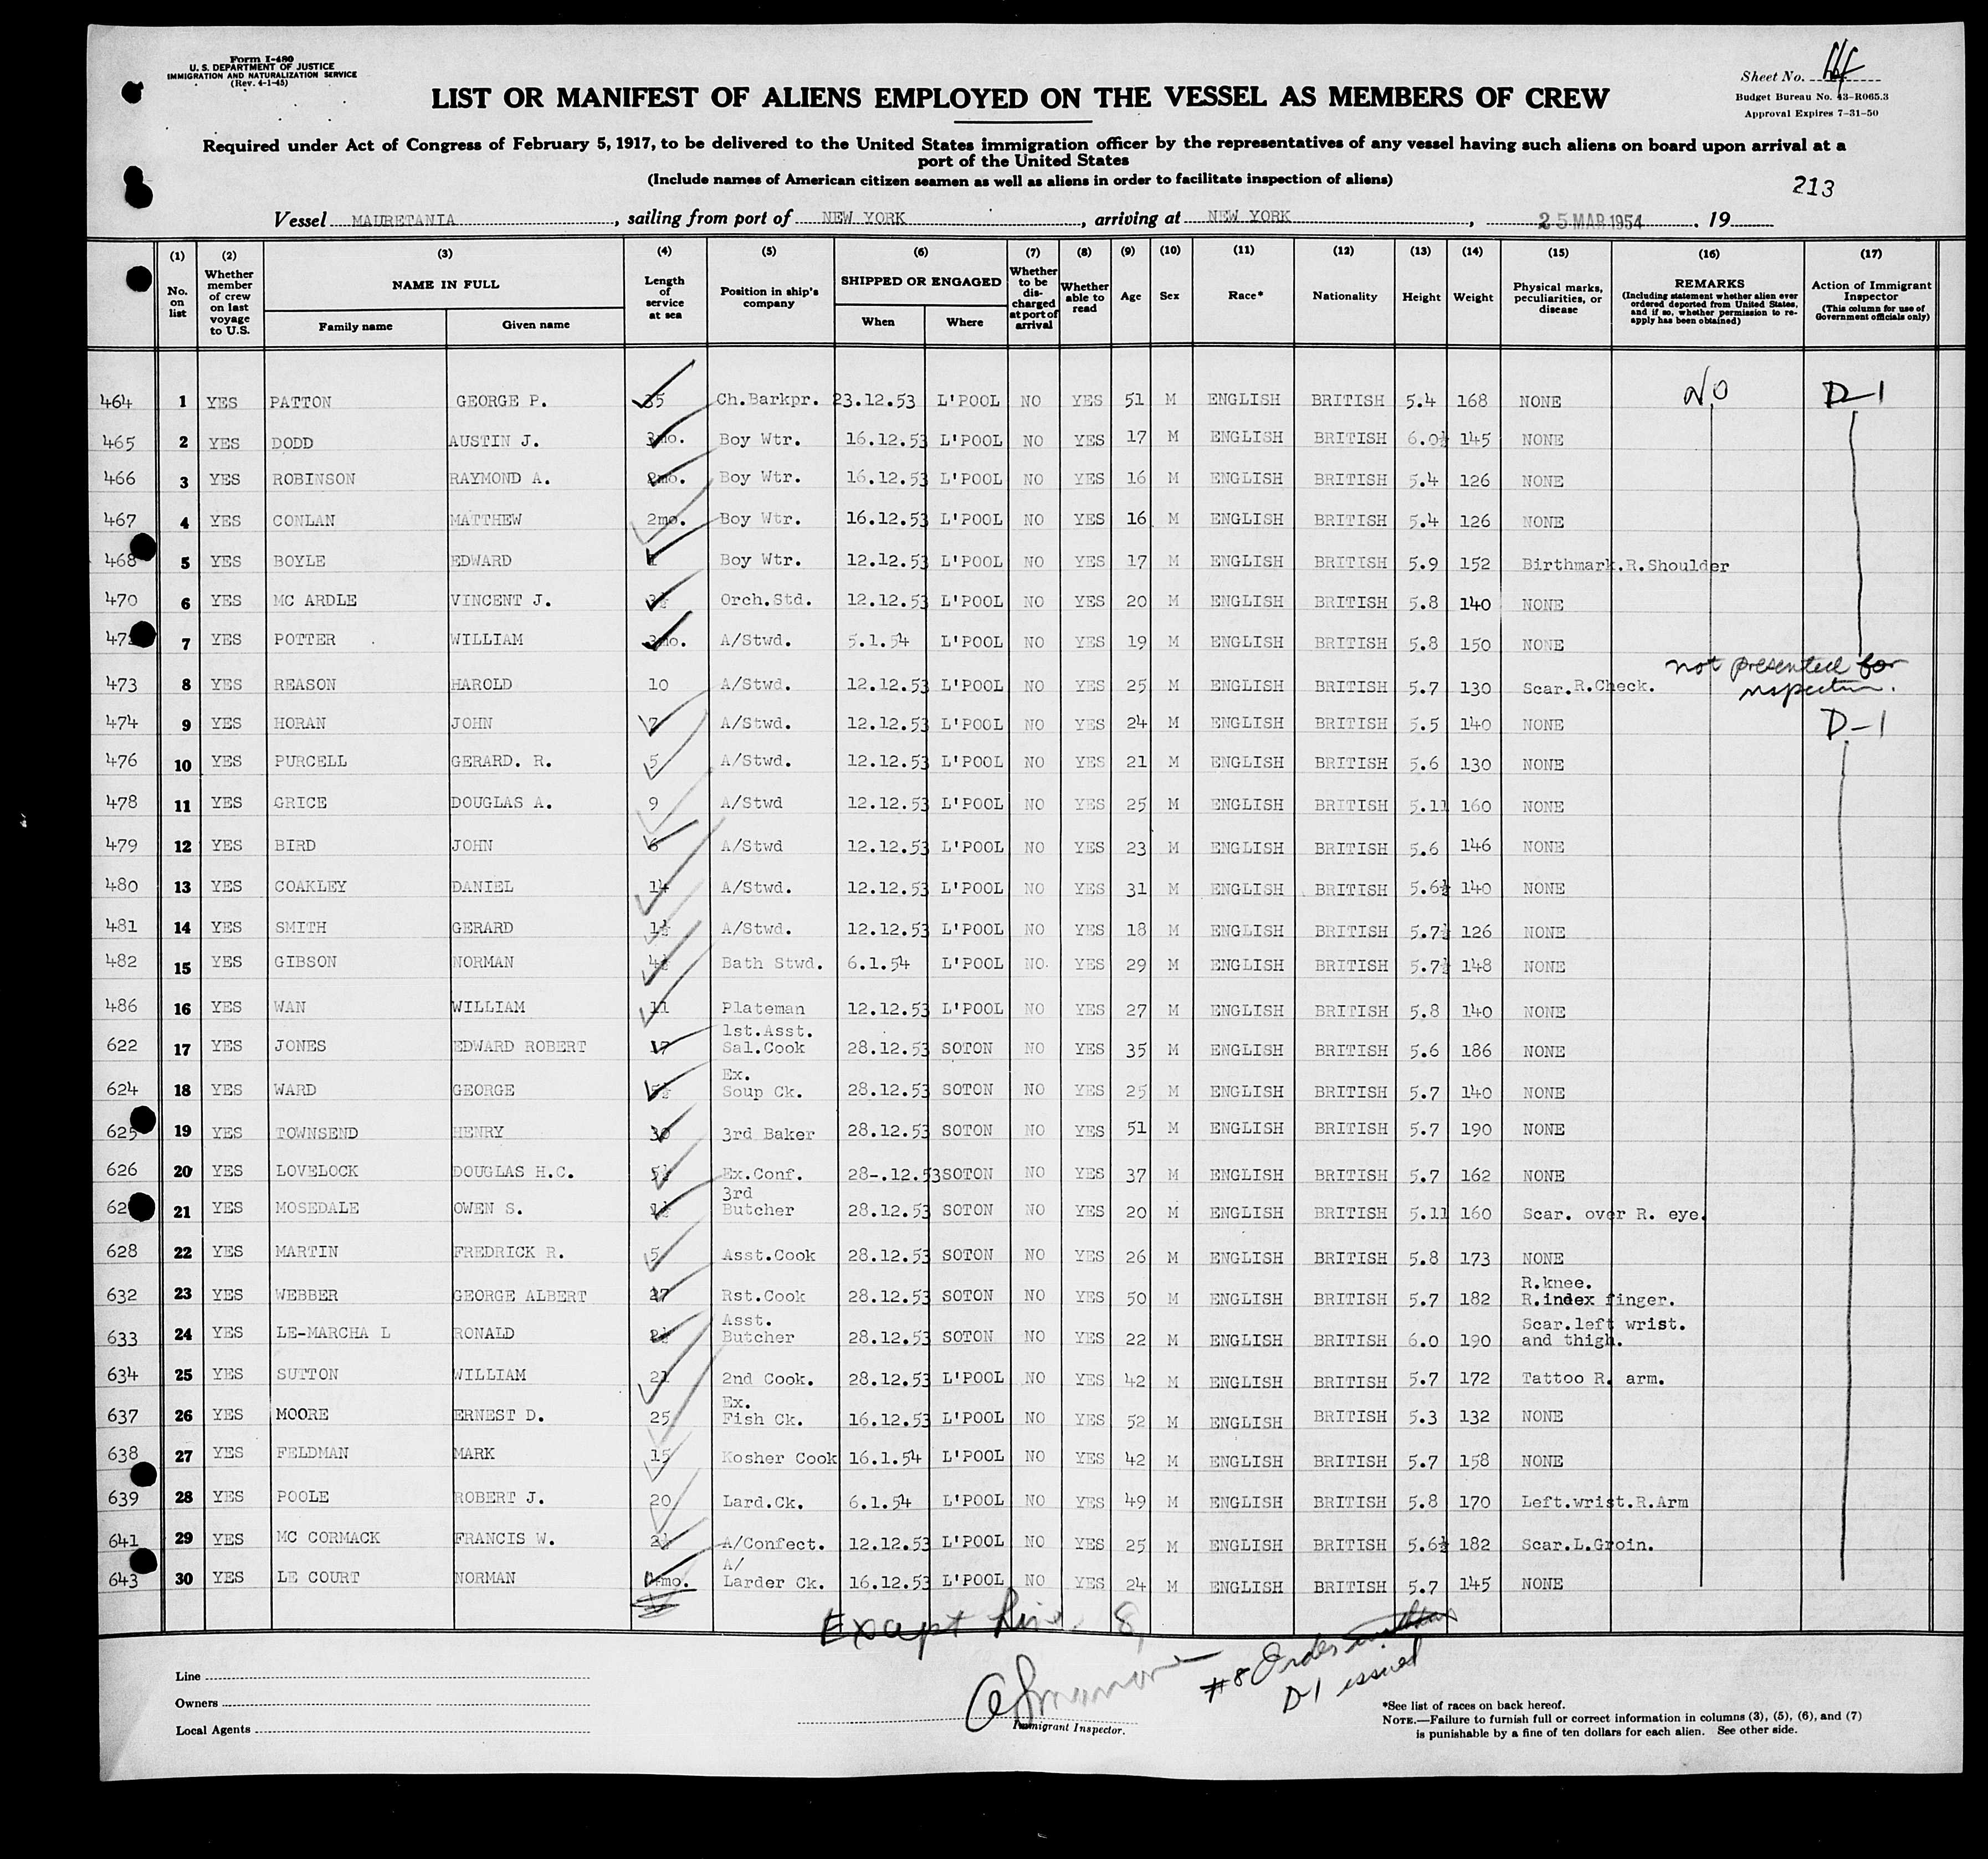 Form I-480
U. S. DEPARTMENT OF JUSTICE
IMMIGRATION AND NATURALIZATION SERVICE
(Rev. 4-1-45)
Sheet No.
Budget Bureau No. 43-R065.3
Approval Expires 7-31-50
LIST OR MANIFEST OF ALIENS EMPLOYED ON THE VESSEL AS MEMBERS OF CREW
Required under Act of Congress of February 5, 1917, to be delivered to the United States immigration officer by the representatives of any vessel having such aliens on board upon arrival at a
port of the United States
(Include names of American citizen seamen as well as aliens in order to facilitate inspection of aliens)
213
Vessel MAURETANIA, sailing from port of NEW YORK, arriving at NEW YORK, 25 MAR 1954. 19
(1) (2) (3) (4) (5) (6) (7) (8) (9) (10) (11) (12) (13) (14) (15) (16) (17)
No. on list | Whether member of crew on last voyage to U.S. | NAME IN FULL Family name Given name | Length of service at sea | Position in ship's company | SHIPPED OR ENGAGED When Where | Whether to be discharged at port of arrival | Whether able to read | Age | Sex | Race* | Nationality | Height | Weight | Physical marks, peculiarities, or disease | REMARKS (Including statement whether alien ever ordered deported from United States, and if so, whether permission to reapply has been obtained) | Action of Immigrant Inspector (This column for use of Government officials only)
464 1 YES PATTON GEORGE P. 35 Ch.Barkpr. 23.12.53 L'POOL NO YES 51 M ENGLISH BRITISH 5.4 168 NONE NO D-1
465 2 YES DODD AUSTIN J. 3mo. Boy Wtr. 16.12.53 L'POOL NO YES 17 M ENGLISH BRITISH 6.0½ 145 NONE
466 3 YES ROBINSON RAYMOND A. 2mo. Boy Wtr. 16.12.53 L'POOL NO YES 16 M ENGLISH BRITISH 5.4 126 NONE
467 4 YES CONLAN MATTHEW 2mo. Boy Wtr. 16.12.53 L'POOL NO YES 16 M ENGLISH BRITISH 5.4 126 NONE
468 5 YES BOYLE EDWARD 1 Boy Wtr. 12.12.53 L'POOL NO YES 17 M ENGLISH BRITISH 5.9 152 Birthmark.R.Shoulder
470 6 YES MC ARDLE VINCENT J. 3½ Orch.Std. 12.12.53 L'POOL NO YES 20 M ENGLISH BRITISH 5.8 140 NONE
7 YES POTTER WILLIAM 3mo. A/Stwd. 5.1.54 L'POOL NO YES 19 M ENGLISH BRITISH 5.8 150 NONE
473 8 YES REASON HAROLD 10 A/Stwd. 12.12.53 L'POOL NO YES 25 M ENGLISH BRITISH 5.7 130 Scar.R.Check. not presented for inspection.
474 9 YES HORAN JOHN 7 A/Stwd. 12.12.53 L'POOL NO YES 24 M ENGLISH BRITISH 5.5 140 NONE D-1
476 10 YES PURCELL GERARD. R. 5 A/Stwd. 12.12.53 L'POOL NO YES 21 M ENGLISH BRITISH 5.6 130 NONE
478 11 YES GRICE DOUGLAS A. 9 A/Stwd 12.12.53 L'POOL NO YES 25 M ENGLISH BRITISH 5.11 160 NONE
479 12 YES BIRD JOHN 6 A/Stwd 12.12.53 L'POOL NO YES 23 M ENGLISH BRITISH 5.6 146 NONE
480 13 YES COAKLEY DANIEL 14 A/Stwd. 12.12.53 L'POOL NO YES 31 M ENGLISH BRITISH 5.6½ 140 NONE
481 14 YES SMITH GERARD 1½ A/Stwd. 12.12.53 L'POOL NO YES 18 M ENGLISH BRITISH 5.7½ 126 NONE
482 15 YES GIBSON NORMAN 4½ Bath Stwd. 6.1.54 L'POOL NO. YES 29 M ENGLISH BRITISH 5.7½ 148 NONE
486 16 YES WAN WILLIAM 11 Plateman 12.12.53 L'POOL NO YES 27 M ENGLISH BRITISH 5.8 140 NONE
622 17 YES JONES EDWARD ROBERT 17 1st.Asst. Sal.Cook 28.12.53 SOTON NO YES 35 M ENGLISH BRITISH 5.6 186 NONE
624 18 YES WARD GEORGE 5½ Ex. Soup Ck. 28.12.53 SOTON NO YES 25 M ENGLISH BRITISH 5.7 140 NONE
625 19 YES TOWNSEND HENRY 30 3rd Baker 28.12.53 SOTON NO YES 51 M ENGLISH BRITISH 5.7 190 NONE
626 20 YES LOVELOCK DOUGLAS H.C. 5½ Ex.Conf. 28-.12.53 SOTON NO YES 37 M ENGLISH BRITISH 5.7 162 NONE
21 YES MOSEDALE OWEN S. 1½ 3rd Butcher 28.12.53 SOTON NO YES 20 M ENGLISH BRITISH 5.11 160 Scar. over R. eye.
628 22 YES MARTIN FREDRICK R. 5 Asst.Cook 28.12.53 SOTON NO YES 26 M ENGLISH BRITISH 5.8 173 NONE
632 23 YES WEBBER GEORGE ALBERT 27 Rst.Cook 28.12.53 SOTON NO YES 50 M ENGLISH BRITISH 5.7 182 R.knee. R.index finger.
633 24 YES LE-MARCHA L RONALD 2½ Asst. Butcher 28.12.53 SOTON NO YES 22 M ENGLISH BRITISH 6.0 190 Scar.left wrist. and thigh.
634 25 YES SUTTON WILLIAM 21 2nd Cook. 28.12.53 L'POOL NO YES 42 M ENGLISH BRITISH 5.7 172 Tattoo R. arm.
637 26 YES MOORE ERNEST D. 25 Ex. Fish Ck. 16.12.53 L'POOL NO YES 52 M ENGLISH BRITISH 5.3 132 NONE
638 27 YES FELDMAN MARK 15 Kosher Cook 16.1.54 L'POOL NO YES 42 M ENGLISH BRITISH 5.7 158 NONE
639 28 YES POOLE ROBERT J. 20 Lard.Ck. 6.1.54 L'POOL NO YES 49 M ENGLISH BRITISH 5.8 170 Left.wrist.R.Arm
641 29 YES MC CORMACK FRANCIS W. 2½ A/Confect. 12.12.53 L'POOL NO YES 25 M ENGLISH BRITISH 5.6½ 182 Scar.L.Groin.
643 30 YES LE COURT NORMAN mo. A/ Larder Ck. 16.12.53 L'POOL NO YES 24 M ENGLISH BRITISH 5.7 145 NONE
Except Line 8,
#8 Order
D-1 issued
Line
Owners
Local Agents
Immigrant Inspector.
*See list of races on back hereof.
NOTE.—Failure to furnish full or correct information in columns (3), (5), (6), and (7)
is punishable by a fine of ten dollars for each alien. See other side.